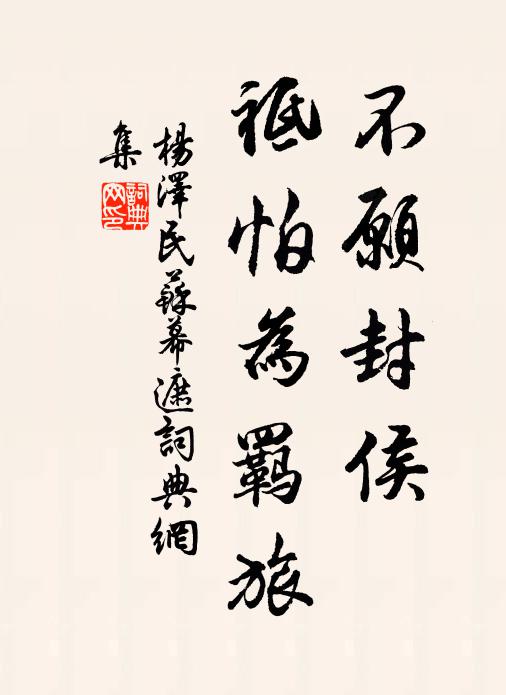 不願封侯
祗怕為羈旅
楊澤民蘇幕遮詞典網
集
詞典
网印